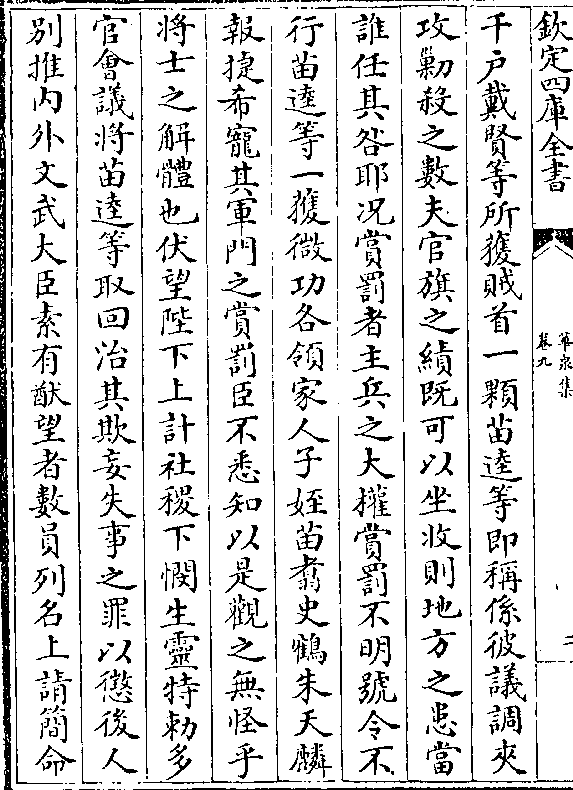 欽定四庫全書
卷九
二
千戶戴賢等所獲賊首一顆苗逵等即稱係彼議調夾
攻勦殺之數夫官旗之績既可以坐收則地方之患當
誰任其咎耶况賞罰者主兵之大權賞罰不明號令不
行苗逵等一獲微功各領家人子姪苗翥史鶴朱天麟
報捷希寵其軍門之賞罰臣不悉知以是觀之無怪乎
將士之解體也伏望陛下上計社稷下憫生靈特勅多
官會議將苗逵等取回治其欺妄失事之罪以懲後人
別推内外文武大臣素有猷望者數員列名上請簡命